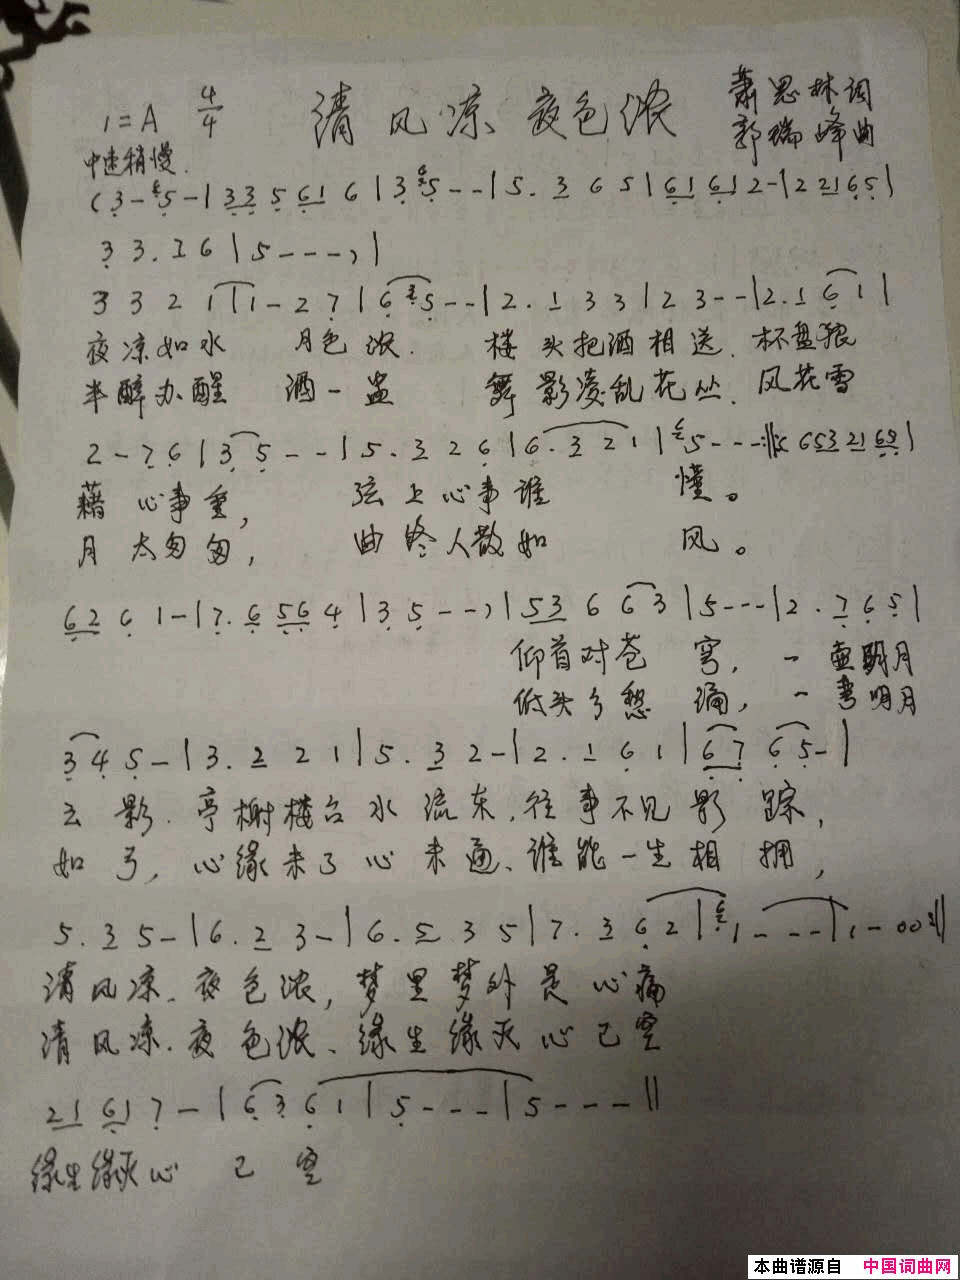 1=A 4/4 清风凉夜色浓 萧思林词
中速稍慢. 郭瑞峰曲
(3-5-|33 5 61 6|3 5--|5. 3 6 5|61 61 2-|2 2165|
3 3. 2 6|5---,)|
3 3 2 1|1-2 7|6 5--|2. 1 3 3|2 3--|2. 1 6 1|
夜凉如水 月色浓. 楼头把酒相送. 杯盘狼
半醉办醒 酒一盅 舞影凌乱花丛. 风花雪
2-7 6|3 5--|5. 3 2 6|6. 3 2 1|5---:||
藉 心事重, 弦上心事谁 懂。
月太匆匆, 曲终人散如 风。
62 6 1-|7. 6 56 4|3 5--,)|53 6 6 3|5---|2. 7 6 5|
仰首对苍 穹, 一壶明月
低头乡愁 涌, 一弯明月
3 4 5-|3. 2 2 1|5. 3 2-|2. 1 6 1|67 6 5-|
云影. 亭榭楼台水流东, 往事不见影踪,
如弓, 心缘未了心未通、谁能一生相拥,
5. 3 5-|6. 2 3-|6. 5 3 5|7. 3 6 2|1---|1-00:||
清风凉. 夜色浓, 梦里梦外是心痛
清风凉. 夜色浓、缘生缘灭心已空
21 61 7-|6 3 6 1|5---|5---||
缘生缘灭心 已 空
本曲谱源自 中国词曲网